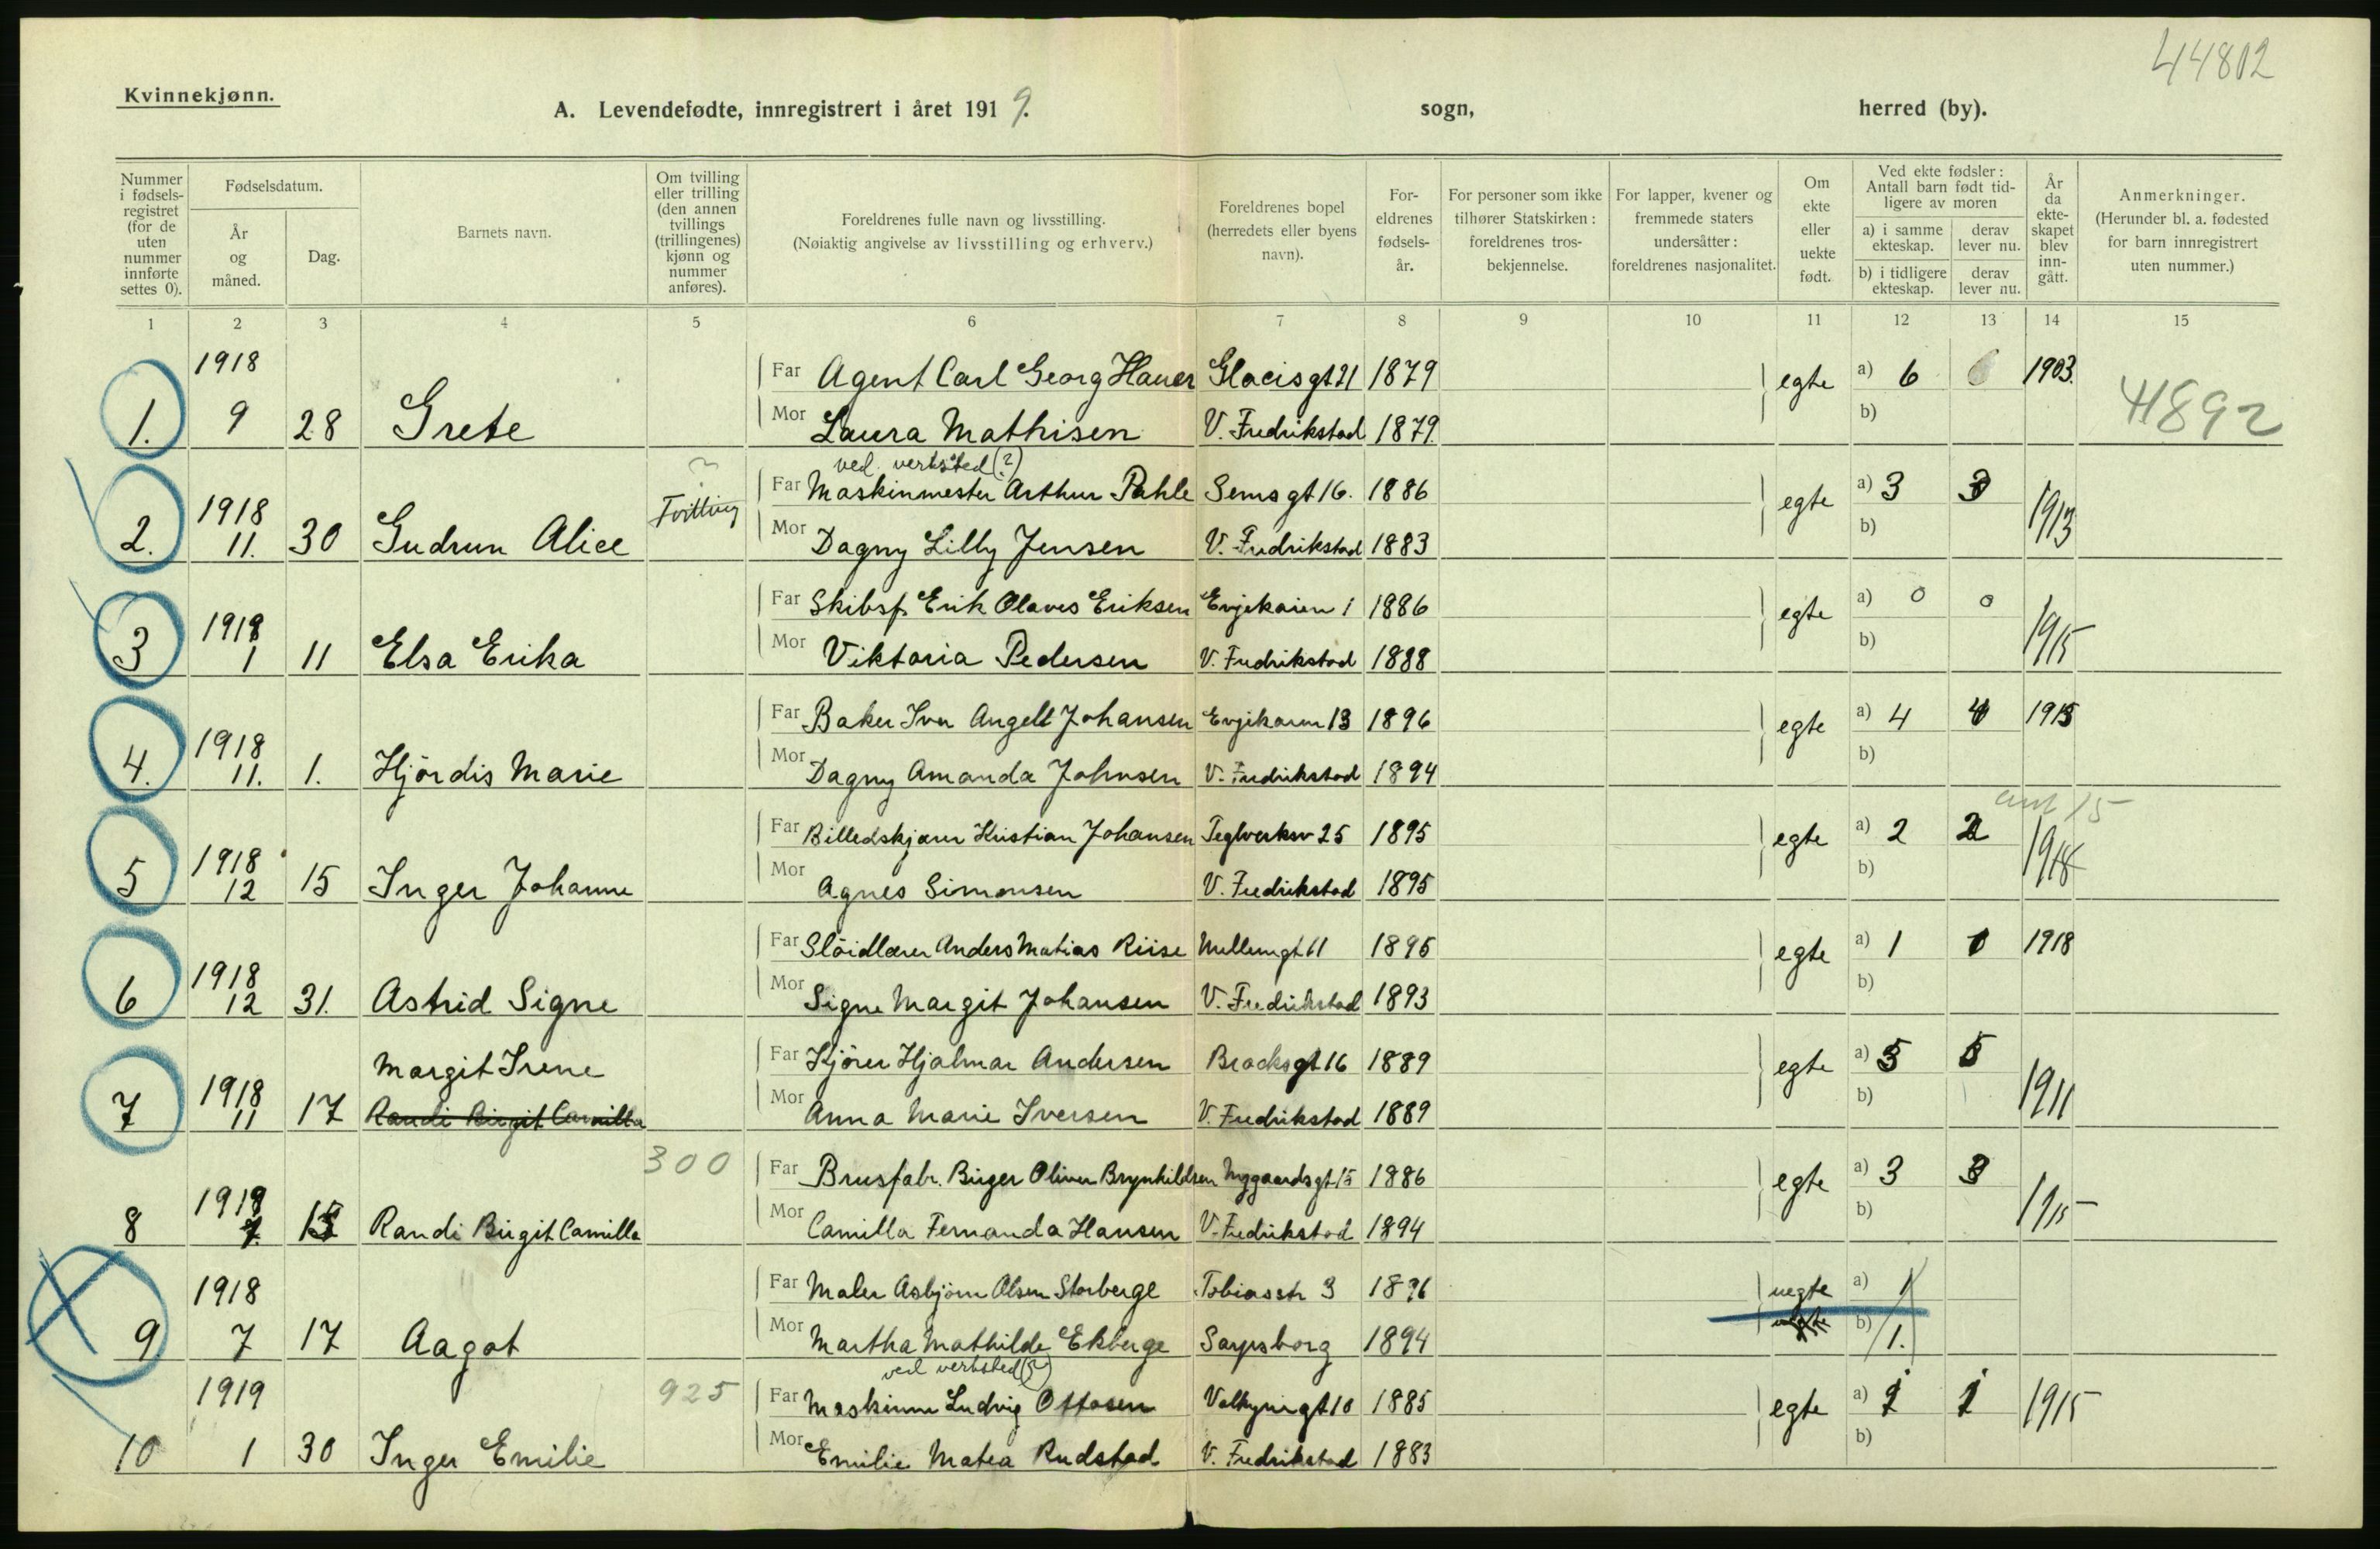 44802
Kvinnekjønn.
A. Levendefødte, innregistrert i året 1919. sogn, herred (by).
Nummer i fødsels-registret (for de uten nummer innførte settes 0).
Fødselsdatum.
År og måned.
Dag.
Barnets navn.
Om tvilling eller trilling (den annen tvillings (trillingenes) kjønn og nummer anføres).
Foreldrenes fulle navn og livsstilling.
(Nøiaktig angivelse av livsstilling og erhverv.)
Foreldrenes bopel (herredets eller byens navn).
For-eldrenes fødsels-år.
For personer som ikke tilhører Statskirken: foreldrenes tros-bekjennelse.
For lapper, kvener og fremmede staters undersåtter: foreldrenes nasjonalitet.
Om ekte eller uekte født.
Ved ekte fødsler: Antall barn født tid-ligere av moren
a) i samme ekteskap. derav lever nu.
b) i tidligere ekteskap. derav lever nu.
År da ekte-skapet blev inn-gått.
Anmerkninger.
(Herunder bl. a. fødested for barn innregistrert uten nummer.)
1 2 3 4 5 6 7 8 9 10 11 12 13 14 15
1918 Far Agent Carl Georg Hauer Glacisgt 21 1879 egte a) 6 6 1903.
1. 9 28 Grete Mor Laura Mathisen V. Fredrikstad 1879 b) 41892
ved verksted (?)
1918 Tvilling ? Far Maskinmester Arthur Pahle Sems gt 16. 1886 egte a) 3 3 1913
2. 11. 30 Gudrun Alice Mor Dagny Lilly Jensen V. Fredrikstad 1883 b)
1919 Far Skibsf. Erik Olaves Eriksen Evjekaien 1 1886 egte a) 0 0 1915
3 1 11 Elsa Erika Mor Viktoria Pedersen V. Fredrikstad 1888 b)
1918 Far Baker Iver Angell Johansen Evjekaien 13 1896 egte a) 4 4 1915
4. 11. 1. Hjördis Marie Mor Dagny Amanda Johnsen V. Fredrikstad 1894 b)
ant 15
1918 Far Billedskjærer Kristian Johansen Teglverksv 25 1895 egte a) 2 2 1918
5 12 15 Inger Johanne Mor Agnes Simonsen V. Fredrikstad 1895 b)
1918 Far Slöidlærer Anders Matias Riise 11 1895 egte a) 1 1 1918
6 12 31. Astrid Signe Mor Signe Margit Johansen V. Fredrikstad 1893 b)
1918 Margit Irene Far Kjörer Hjalmar Andersen Brochsgt 16 1889 egte a) 5 5 1911
7 11 17 Randi Birgit Camilla Mor Anna Marie Iversen V. Fredrikstad 1889 b)
1919 300 Far Brusfabr. Birger Oliver Brynhildsen Nygaardsgt 15 1886 egte a) 3 3 1915
8 15 Randi Birgit Camilla Mor Camilla Fernanda Hansen V. Fredrikstad 1894 b)
1918 Far Maler Asbjörn Olsen Storberge Tobiasstr 3 1896 uegte a) 1
9 7 17 Aagot Mor Martha Mathilde Ekberge Sarpsborg 1894 b) 1.
ved verksted (?)
1919 925 Far Maskinm Ludvig Ottosen Valkyriegt 10 1885 egte a) 1 1 1915
10 1 30 Inger Emilie Mor Emilie Matea Rudstad V. Fredrikstad 1883 b)